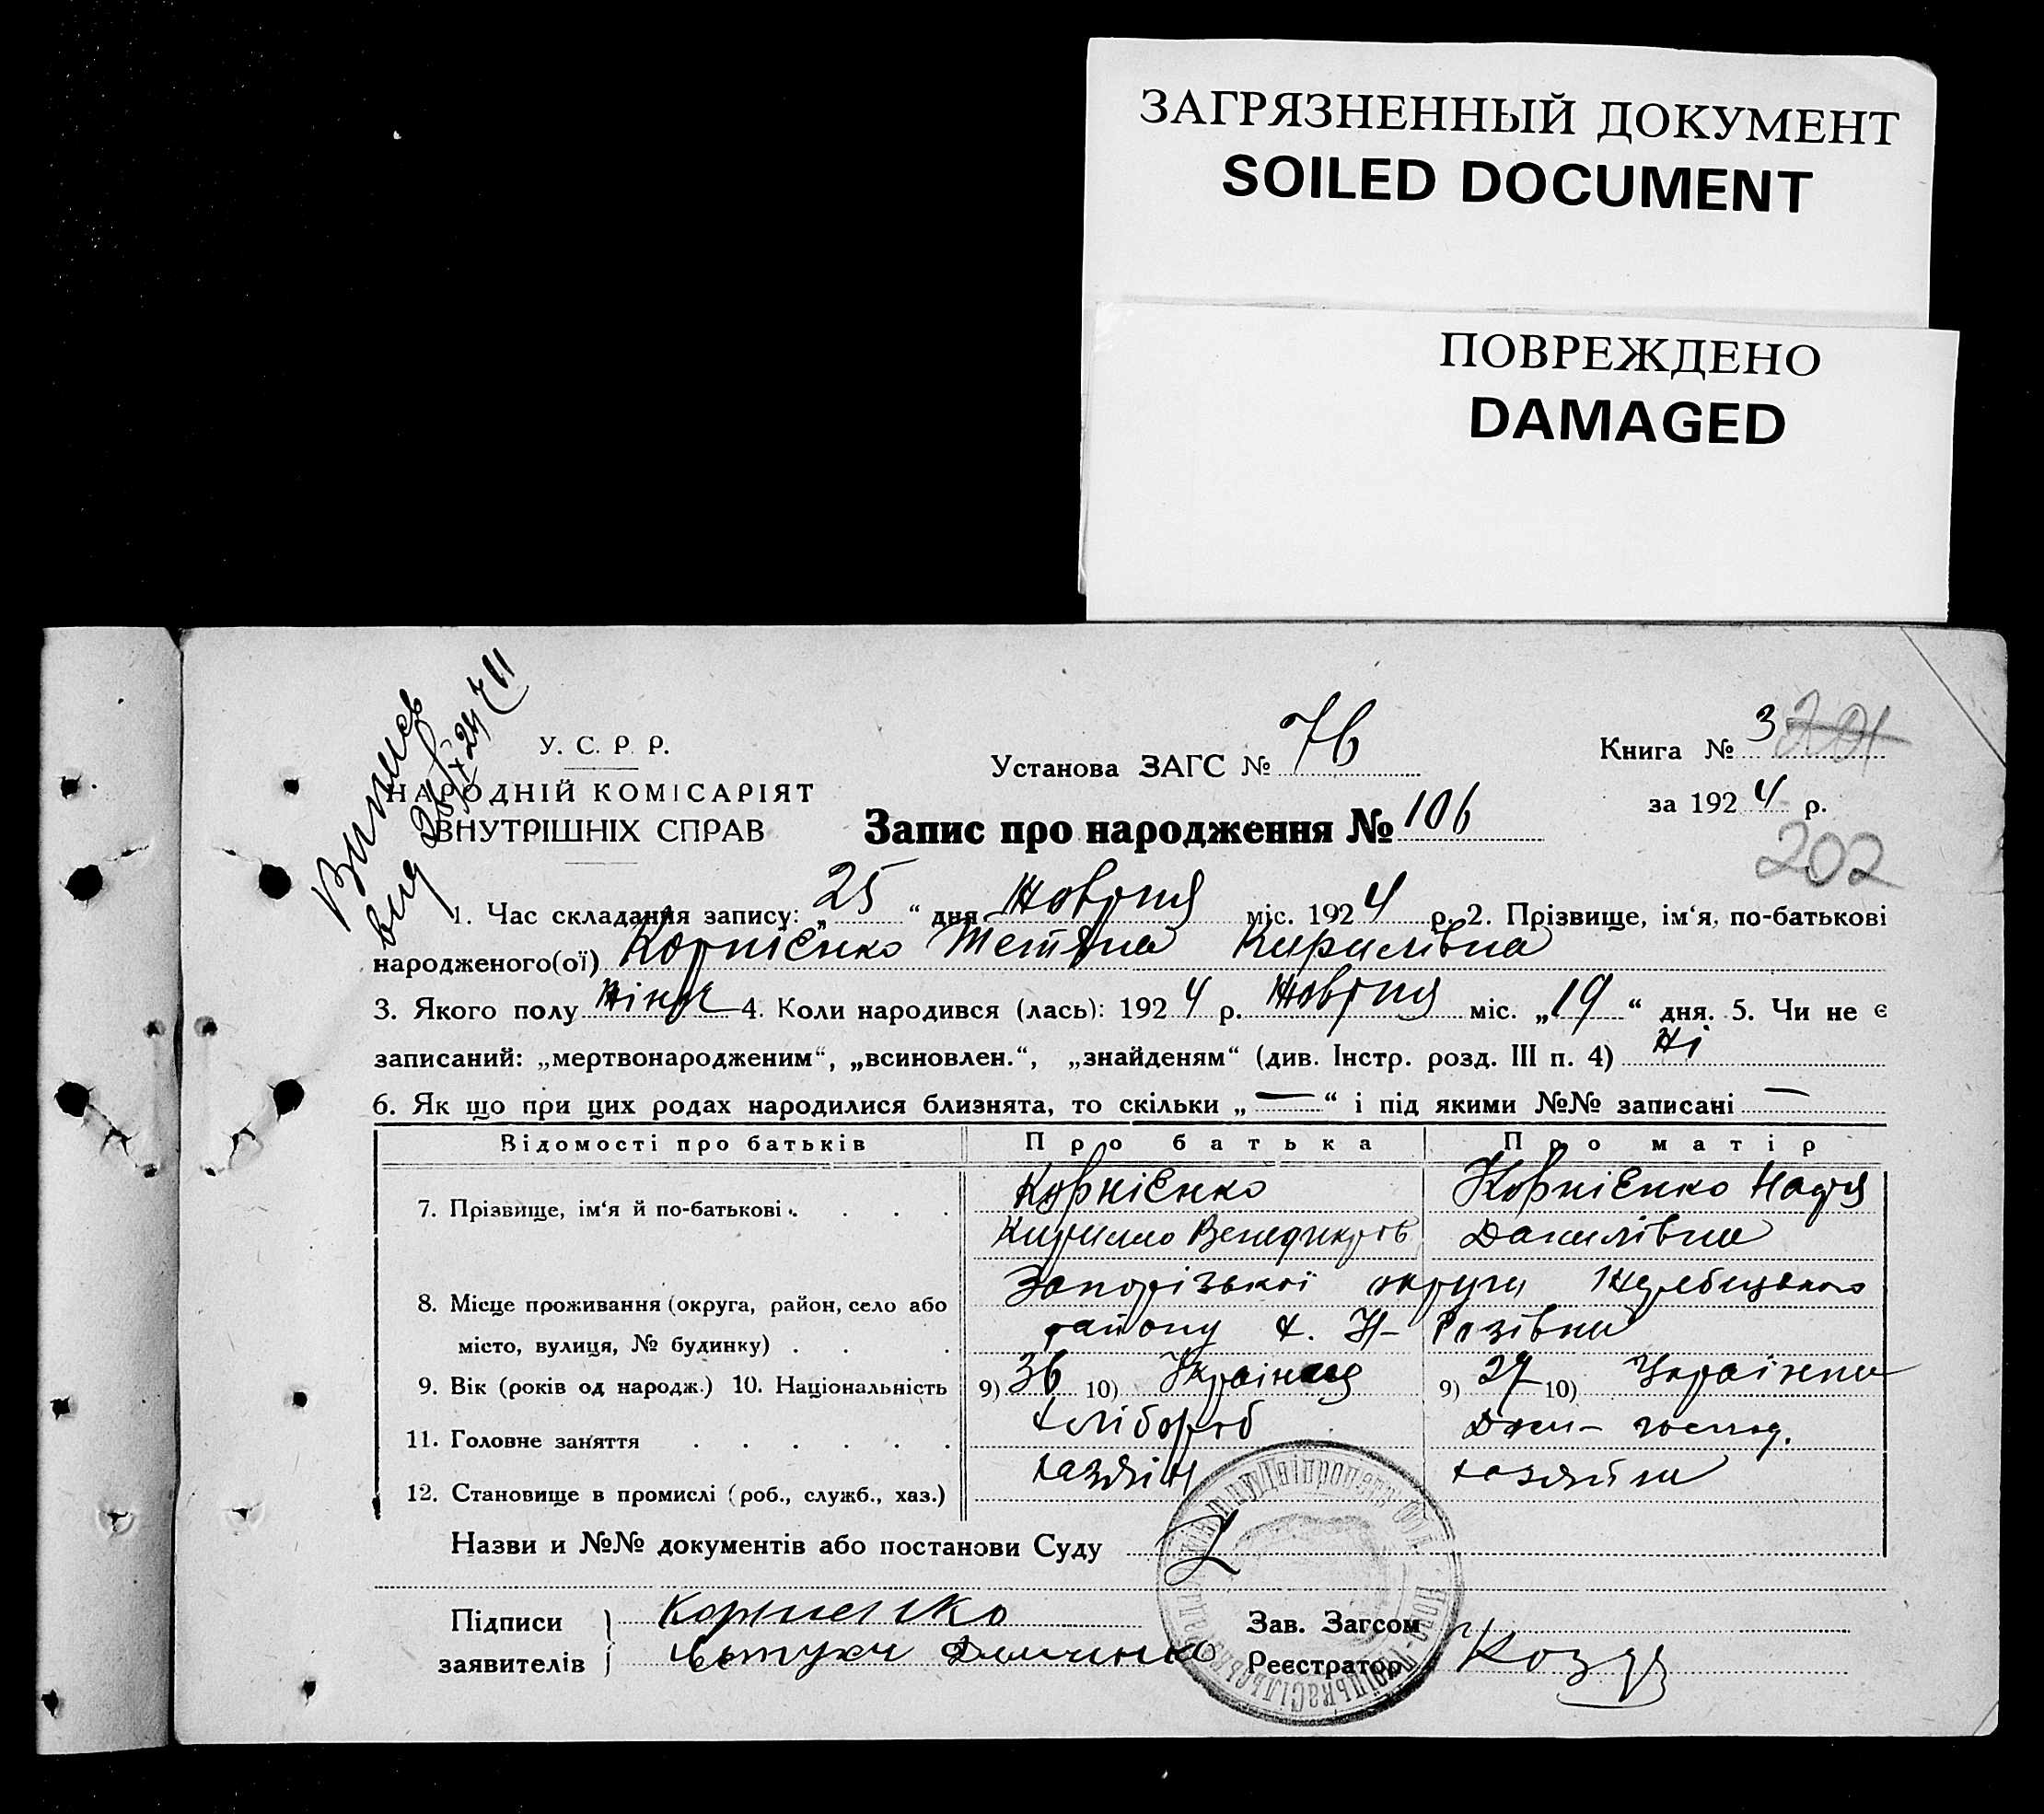 ЗАГРЯЗНЕННЫЙ ДОКУМЕНТ
SOILED DOCUMENT
ПОВРЕЖДЕНО
DAMAGED
У. С. Р. Р.
НАРОДНІЙ КОМІСАРІЯТ
ВНУТРІШНІХ СПРАВ
Установа ЗАГС № 76
Книга № 3 201
за 1924 р.
202
Запис про народження № 106
1. Час складання запису: „25“ дня Жовтня міс. 1924 р. 2. Прізвище, ім‘я, по-батькові
народженого(ої) Корнієнко Тетяна Кирилівна
3. Якого полу жіноч 4. Коли народився (лась): 1924 р. Жовтня міс. „19“ дня. 5. Чи не є
записаний: „мертвонародженим“, „всиновлен.“, „знайденям“ (див. Інстр. розд. III п. 4) Ні
6. Як що при цих родах народилися близнята, то скільки „—“ і під якими №№ записані —
Відомості про батьків Про батька Про матір
7. Прізвище, ім‘я й по-батькові Корнієнко Корнієнко Надія
Кирилло Данилівна
8. Місце проживання (округа, район, село або Запорізької округи
місто, вулиця, № будинку) району х. Н-
9. Вік (років од народж.) 10. Національність 9) 36 10) Українець 9) 27 10) Українка
11. Головне заняття хлібороб Дом- господ.
12. Становище в промислі (роб., служб., хаз.) хазяїн хазяйка
Назви и №№ документів або постанови Суду
Підписи Корниенко Зав. Загсом
заявителів Реєстратор